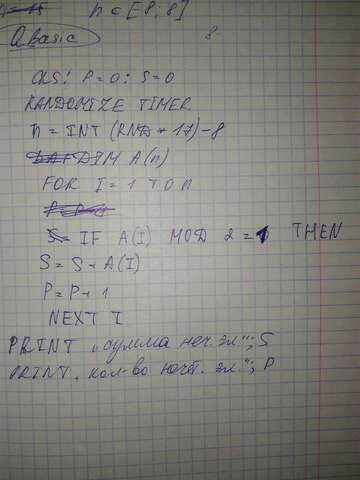 n ∈ [8, 8]
QBasic
8-
CLS: P=0: S=0
RANDOMIZE TIMER
n = INT (RND * 17) - 8
DIM A(n)
FOR I = 1 TO n
IF A(I) MOD 2 = 1 THEN
S = S + A(I)
P = P + 1
NEXT I
PRINT "сумма неч эл"; S
PRINT "кол-во нечёт. эл."; P